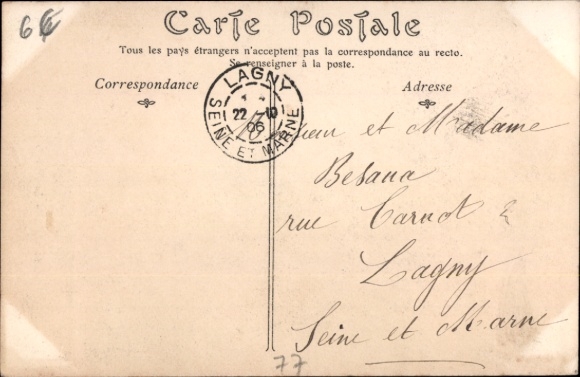 6€
Carte Postale
Tous les pays étrangers n'acceptent pas la correspondance au recto.
Se renseigner à la poste.
Correspondance
Adresse
LAGNY
22 -10
06
SEINE ET MARNE
et Madame
Besana
rue Carnot
Lagny
Seine et Marne
77